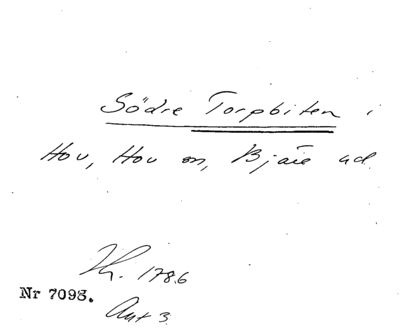 Södre Torpbiten i
Hov, Hov sn, Bjäre hd.
Th. 1786
Nr 7098.
Akt 3.